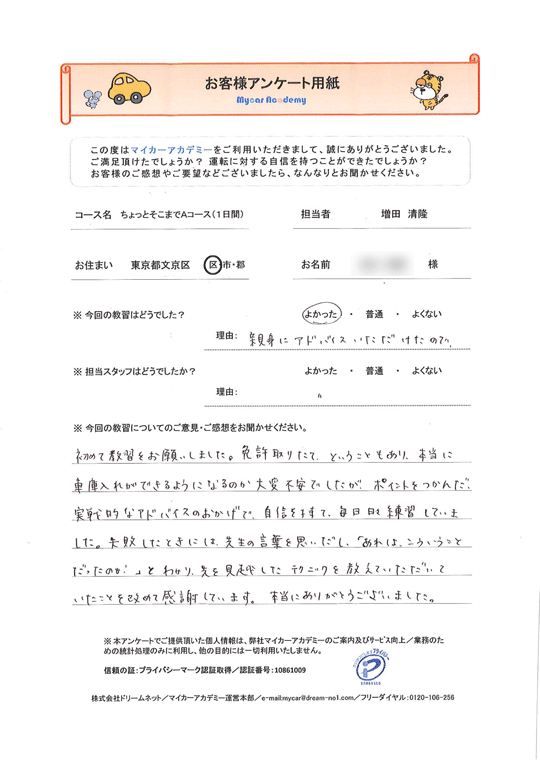 お客様アンケート用紙
Mycar Academy
この度はマイカーアカデミーをご利用いただきまして、誠にありがとうございました。
ご満足頂けたでしょうか？ 運転に対する自信を持つことができたでしょうか？
お客様のご感想やご要望などございましたら、なんなりとお聞かせください。
コース名 ちょっとそこまでAコース（1日間） 担当者 増田 清隆
お住まい 東京都文京区 区・市・郡 お名前 様
※ 今回の教習はどうでした？ よかった ・ 普通 ・ よくない
理由： 親身にアドバイスいただけたので、
※ 担当スタッフはどうでしたか？ よかった ・ 普通 ・ よくない
理由： 〃
※ 今回の教習についてのご意見・ご感想をお聞かせください。
初めて教習をお願いしました。免許取りたて、ということもあり、本当に
車庫入れができるようになるのか大変不安でしたが、ポイントをつかんだ、
実戦的なアドバイスのおかげで、自信をます、毎日日も練習していま
した。失敗したときには、先生の言葉を思いだし、「あれは、こういうこと
だったのか」とわかり、先を見越したテクニックを教えていただいて
いたことを改めて感謝しています。本当にありがとうございました。
※ 本アンケートでご提供頂いた個人情報は、弊社マイカーアカデミーのご案内及びサービス向上／業務のた
めの統計処理のみに利用し、他の目的には一切利用いたしません。
信頼の証：プライバシーマーク認証取得／認証番号：10861009
株式会社ドリームネット／マイカーアカデミー運営本部／e-mail:mycar@dream-no1.com／フリーダイヤル：0120-106-256